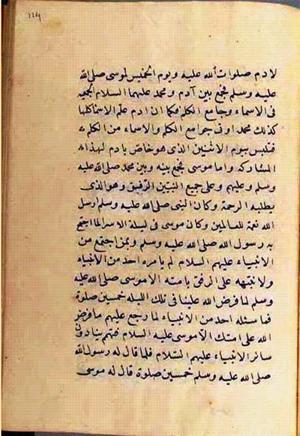 لادم صلوات الله عليه ويوم الخميس لموسى صلى الله
عليه وسلم فجمع بين آدم ومحمد عليهما السلام الجمعية
فى الاسماء وجامع الكلم فكما ان ادم علم الاسماء كلها
كذلك محمد اوتى جوامع الكلم والاسماء من الكلم
فتلبس بيوم الاثنين الذى هو خاص بادم لهذه
المشاركة واما موسى فجمع بينه وبين محمد صلى الله عليه
وسلم وعليهم وعلى جميع النبيين الرفق وهو الذى
يطلبه الرحمة وكان النبى صلى الله عليه وسلم ارسله
الله رحمة للعالمين وكان موسى فى ليلة الاسراء لما اجتمع
به رسول الله صلى الله عليه وسلم وبمن اجتمع من
الانبياء عليهم السلام لم يامره احد من الانبياء
ولا نبهه على الرفق بامته الا موسى صلى الله عليه
وسلم لما فرض الله علينا فى تلك الليلة خمسين صلوة
فما سئله احد من الانبياء لما رجع عليهم ما فرض
الله على امتك الا موسى عليه السلام فتهمم بنا دون
سائر الانبياء عليهم السلام فلما قال له رسول الله
صلى الله عليه وسلم خمسين صلوة قال له موسى